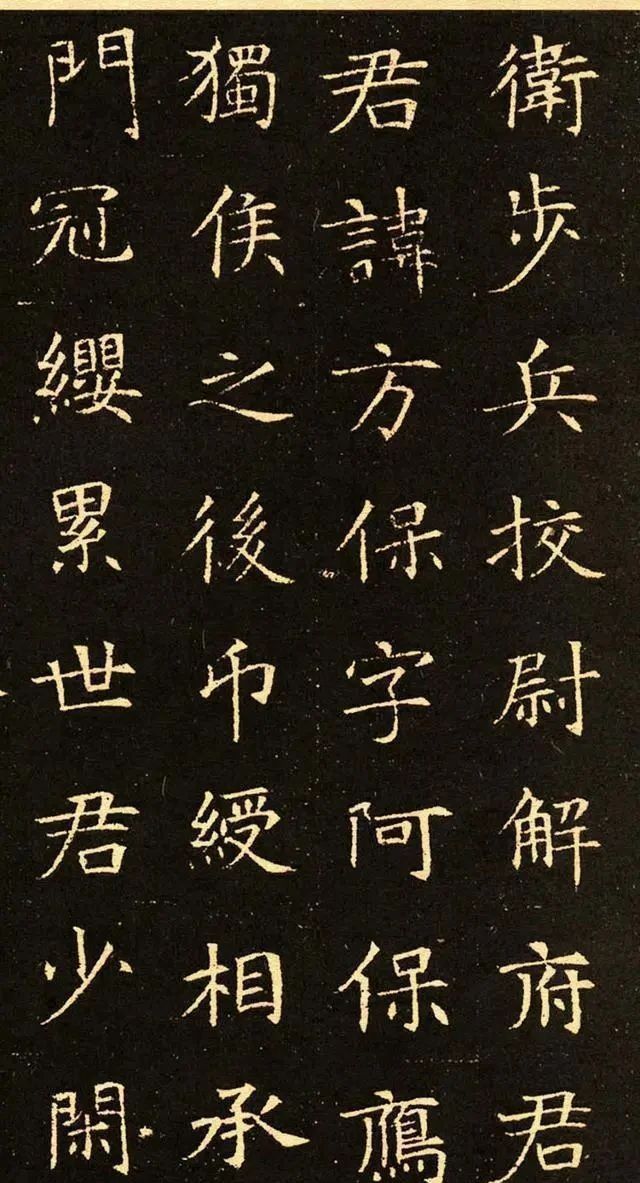 衛步兵挍尉解府君
君諱方保字阿保鴈
獨侯之後币綬相承
門冠纓累世君少閑